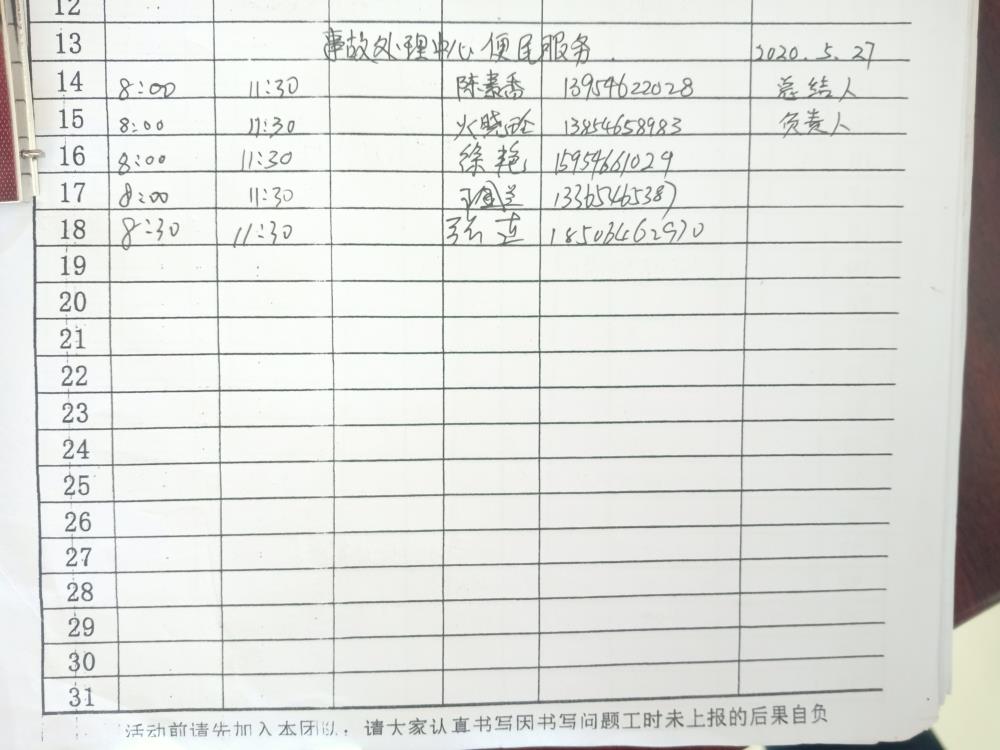 12
13 事故处理中心便民服务. 2020.5.27
14 8:00 11:30 陈素香 13954622028 总结人
15 8:00 11:30 火晓玲 13854658983 负责人
16 8:00 11:30 徐艳 15954661029
17 8:00 11:30 13365465387
18 8:30 11:30 张莲 18503462970
19
20
21
22
23
24
25
26
27
28
29
30
31
活动前请先加入本团队，请大家认真书写因书写问题工时未上报的后果自负